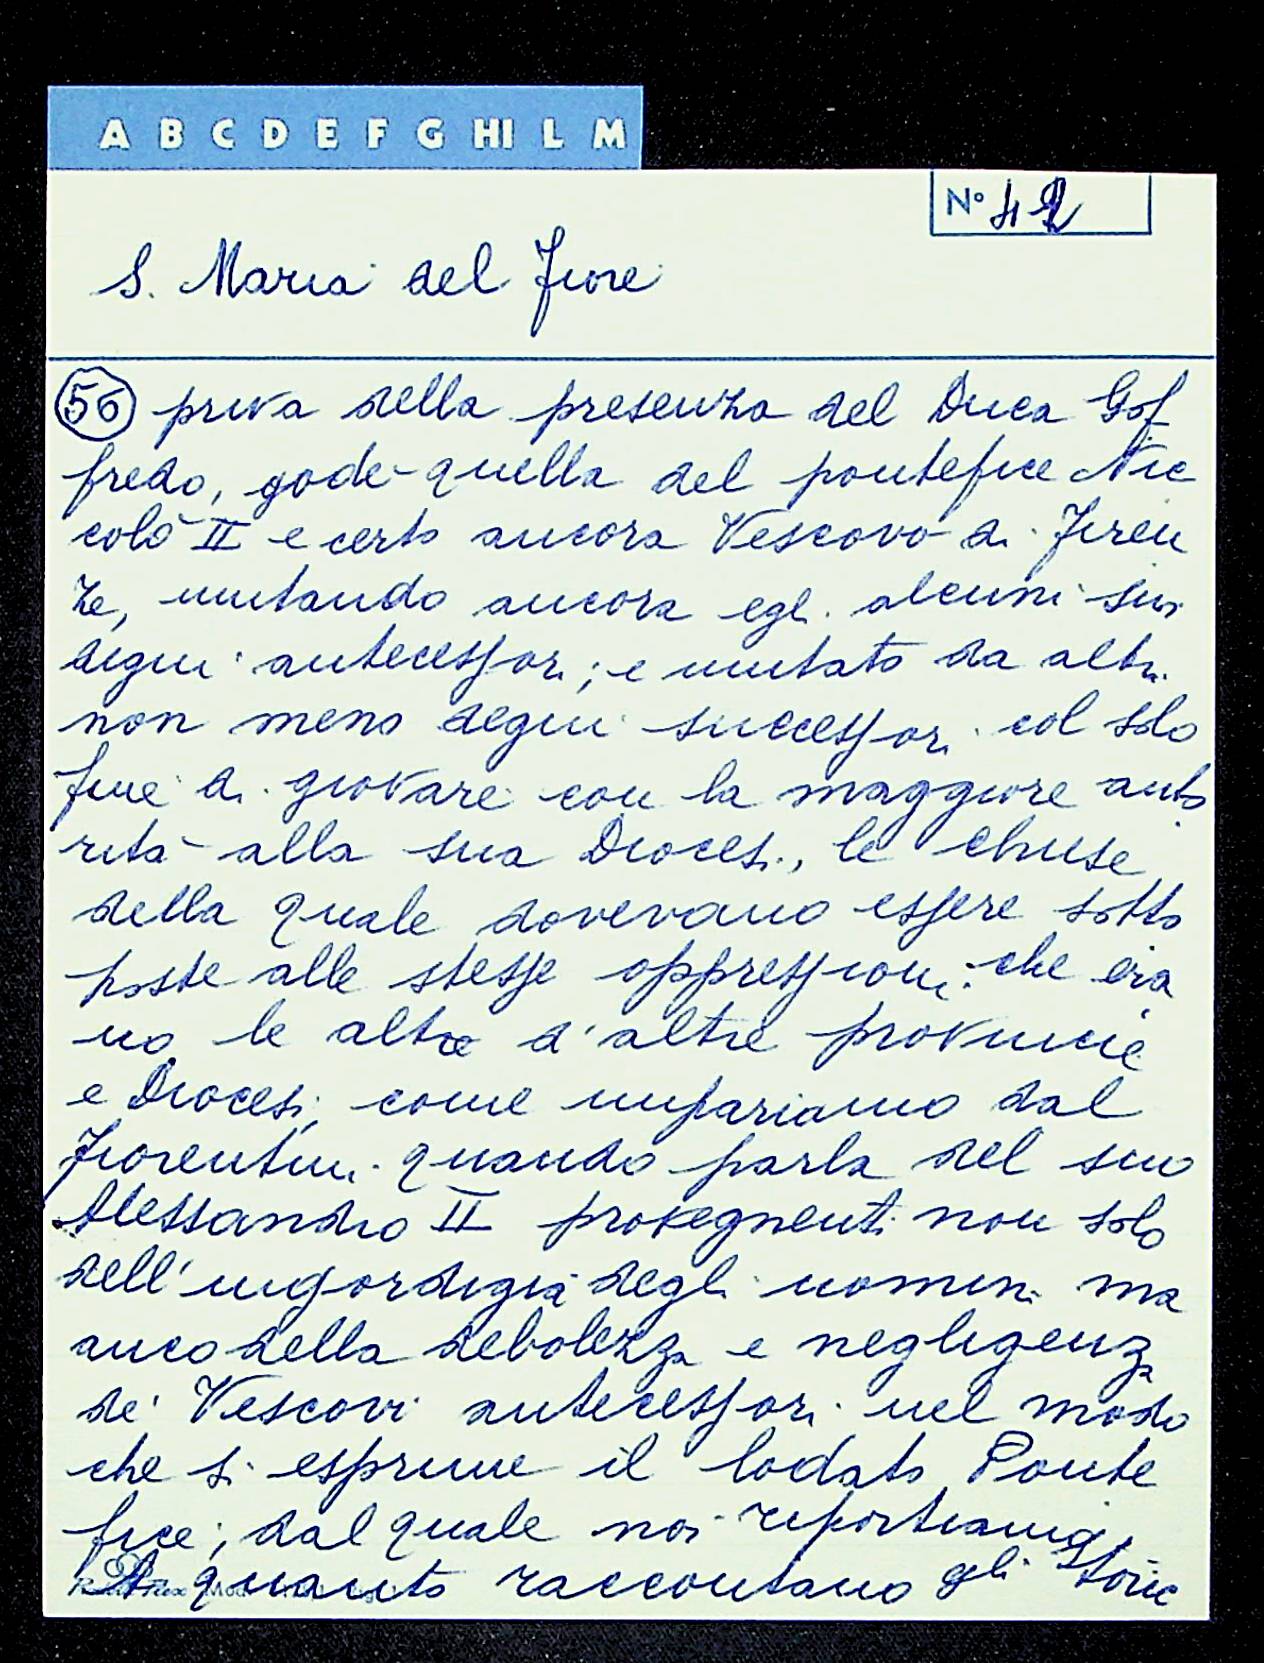 A B C D E F G HI L M
N° 42
S. Maria del Fiore
56 priva della presenza del Duca Gof
fredo, gode quella del pontefice Nic
colò II e certo ancora Vescovo di Firen
ze, imitando ancora egli alcuni suoi
degni antecessori; e imitato da altri
non meno degni successori col solo
fine di giovare con la maggiore auto
rità alla sua Diocesi, le chiese
della quale dovevano essere sotto
poste alle stesse oppressioni che era
no le altre d'altre provincie
e Diocesi, come impariamo dal
Fiorentini quando parla del suo
Alessandro II provegnenti non solo
dell'ingordigia degli uomini ma
anco della debolezza e negligenza
de' Vescovi antecessori nel modo
che si esprime il lodato Ponte
fice; dal quale noi riportiamo
quanto raccontano gli Storic